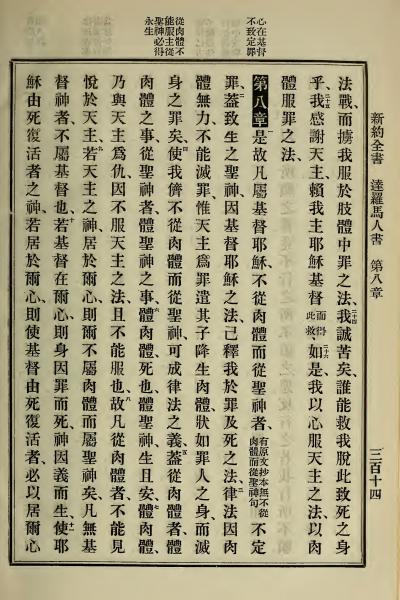 新約全書 達羅馬人書 第八章 三百十四
心在基督
不致定罪
從肉體不
能服主從
聖神必得
永生
法戰、而擄我服於肢體中罪之法、二十四我誠苦矣、誰能救我脫此致死之身
乎、二十五我感謝天主、賴我主耶穌基督而得此救、二十六如是我以心服天主之法、以肉
體服罪之法、
第八章 一是故凡屬基督耶穌、不從肉體而從聖神者、有原文抄本無不從肉體而從聖神句不定
罪、二蓋致生之聖神、因基督耶穌之法、已釋我於罪及死之法、三律法因肉
體無力、不能滅罪、惟天主爲罪遣其子降生、肉體狀如罪人之身、而滅
身之罪矣、四使我儕不從肉體而從聖神、可成律法之義、五蓋從肉體者、體
肉體之事、從聖神者、體聖神之事、六體肉體、死也、體聖神、生且安、七體肉體、
乃與天主爲仇、因不服天主之法、且不能服也、八故凡從肉體者、不能見
悅於天主、九若天主之神、居於爾心、則爾不屬肉體、而屬聖神矣、凡無基
督神者、不屬基督也、十若基督在爾心、則身因罪而死、神因義而生、十一使耶
穌由死復活者之神、若居於爾心、則使基督由死復活者、必以居爾心